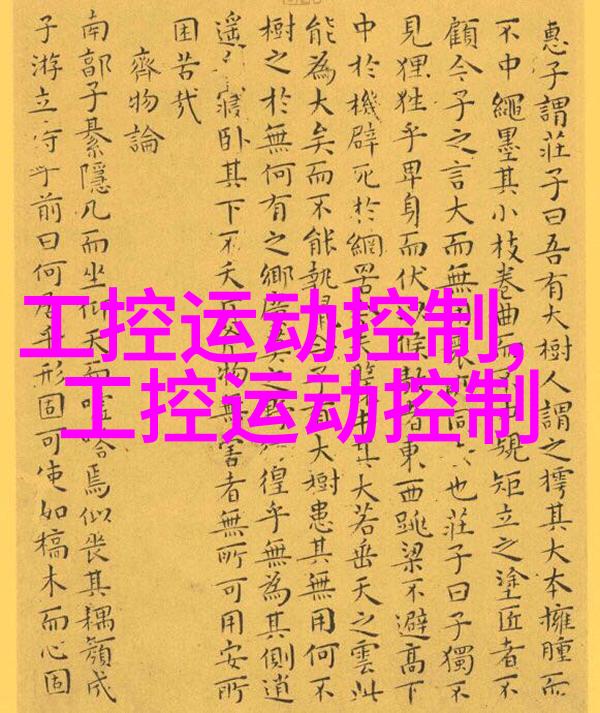 惠子謂莊子曰吾有大樹人謂之樗其大本擁腫而
不中繩墨其小枝卷曲而不中規矩立之塗匠者不
顧今子之言大而無用同也莊子曰子獨不
見狸狌乎卑身而伏候敖者東西跳梁不避高下
中於機辟死於網罟夫其大若垂天之雲此
能為大矣而不能執鼠今子有大樹患其無用何不
樹之於無何有之鄉廣莫之野徨乎無為其側逍
遙寢卧其下不夭斤物無害者無所可用安所
困苦哉
齊物論
南郭子綦隱几而坐仰天而噓嗒焉似喪其耦顏成
子游立侍乎前曰何居乎形固可使如槁木而心固
工控运动控制,
工控运动控制